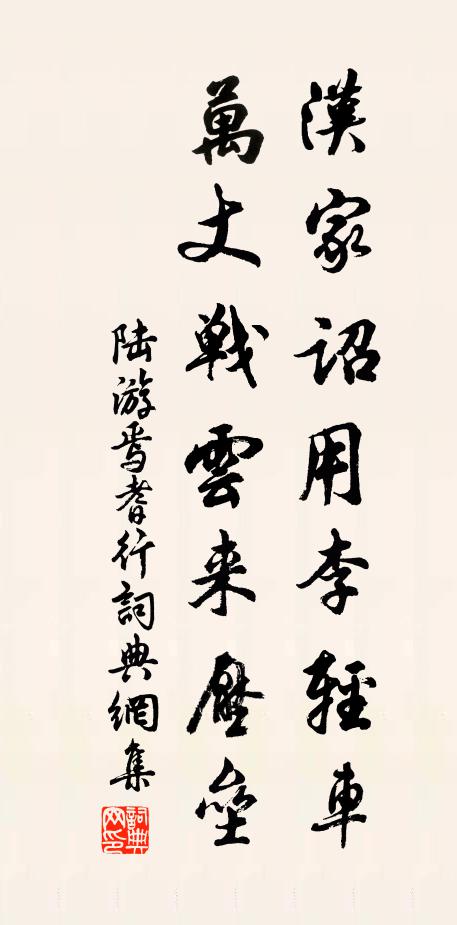 漢家詔用李輕車
萬丈戰雲来壓壘
陆游焉耆行詞典網集
詞典网印